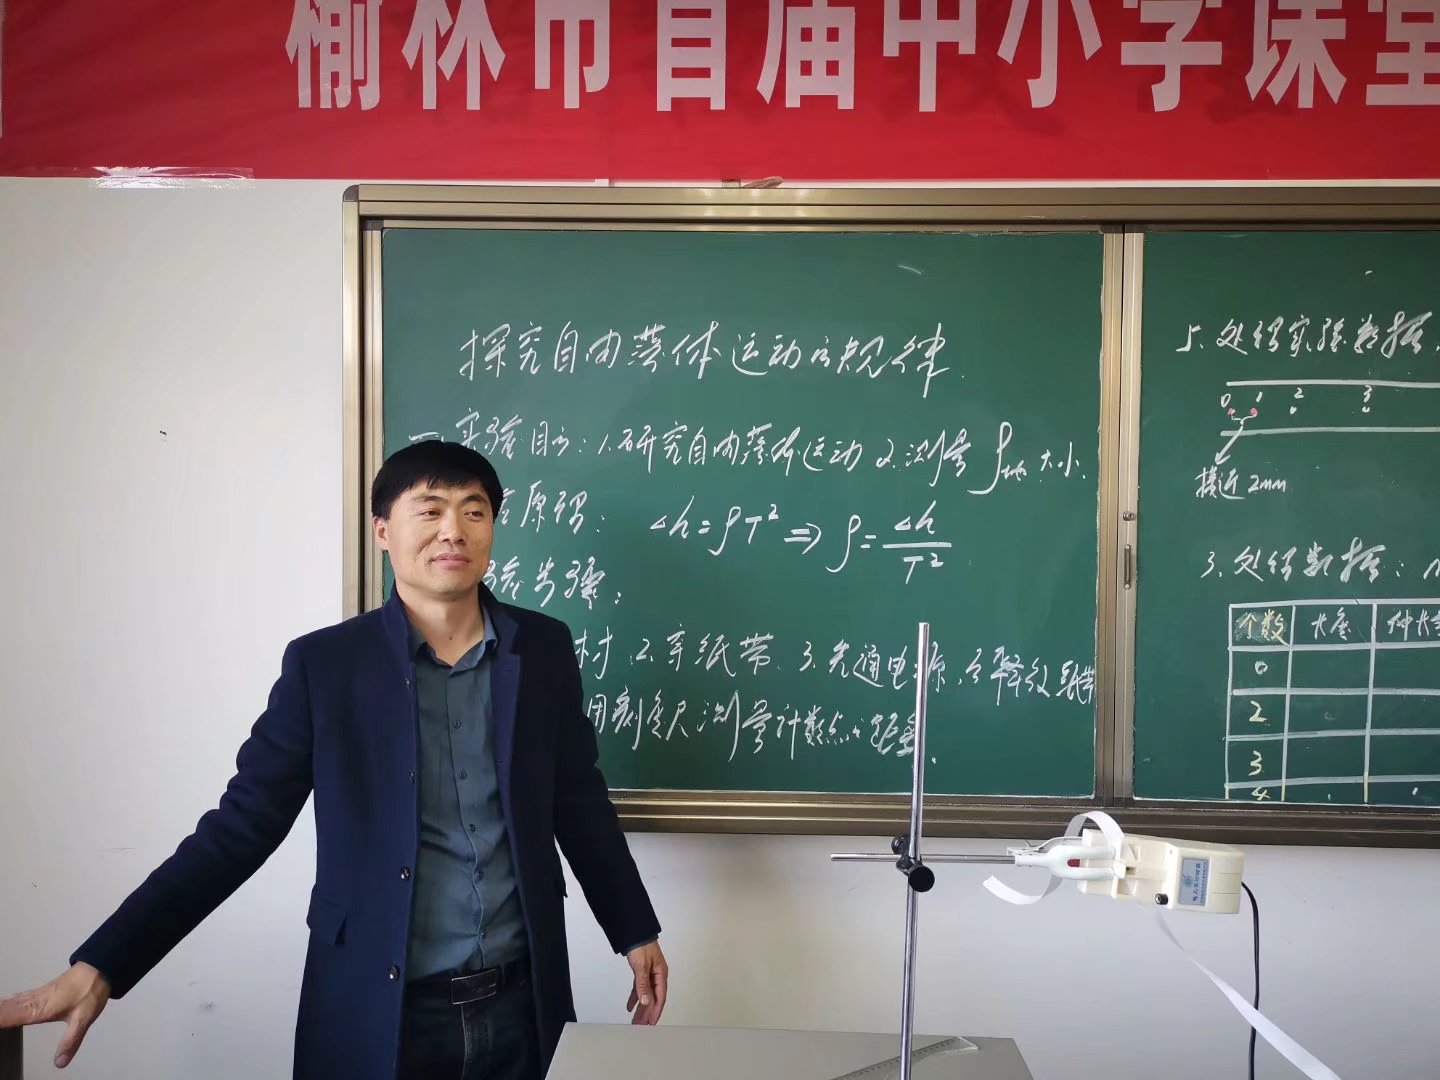 榆林市首届中小学课堂
探究自由落体运动的规律
一、实验目的：1.研究自由落体运动 2.测量g的大小
验原理：Δh=gT²⇒g=Δh/T²
验步骤：
材 2.穿纸带 3.先通电源，后释放纸带
用刻度尺测量计数点的距离.
5.处理实验数据.
0 1 2 3
接近2mm
3.处理数据：
个数 长度
0
2
3
4